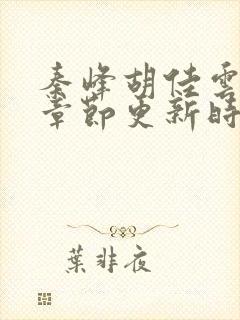 秦峰胡佳雲
章節更新時
葉非夜